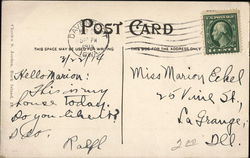 POST CARD
THIS SPACE MAY BE USED FOR WRITING
THIS SIDE FOR THE ADDRESS ONLY
2/22/14
Hello Marion:
This is my
house today.
Do you like it?
I do.
Ralf
Miss Marion Eckel
25 Vine St,
La Grange,
Ill.